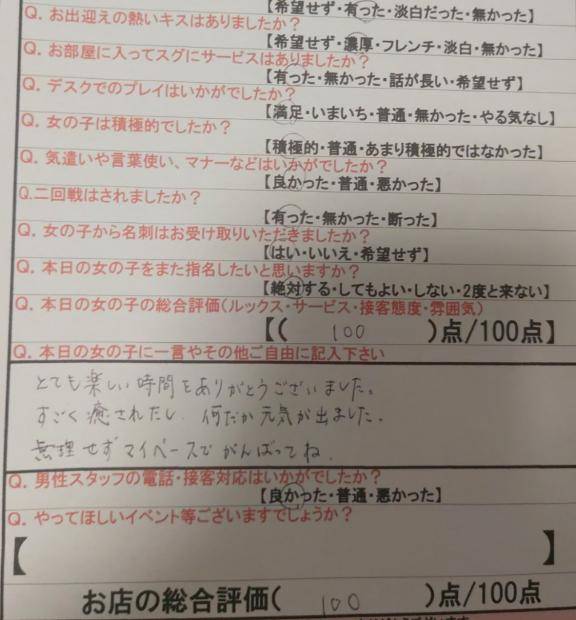 【希望せず・有った・淡白だった・無かった】
Q. お出迎えの熱いキスはありましたか?
【希望せず・濃厚・フレンチ・淡白・無かった】
Q. お部屋に入ってスグにサービスはありましたか?
【有った・無かった・話が長い・希望せず】
Q. デスクでのプレイはいかがでしたか?
【満足・いまいち・普通・無かった・やる気なし】
Q. 女の子は積極的でしたか?
【積極的・普通・あまり積極的ではなかった】
Q. 気遣いや言葉使い、マナーなどはいかがでしたか?
【良かった・普通・悪かった】
Q.二回戦はされましたか?
【有った・無かった・断った】
Q. 女の子から名刺はお受け取りいただきましたか?
【はい・いいえ・希望せず】
Q. 本日の女の子をまた指名したいと思いますか?
【絶対する・してもよい・しない・2度と来ない】
Q. 本日の女の子の総合評価(ルックス・サービス・接客態度・雰囲気)
【( 100 )点/100点】
Q. 本日の女の子に一言やその他ご自由に記入下さい
とても楽しい時間をありがとうございました。
すごく癒されたし、何だか元気が出ました。
無理せずマイペースでがんばってね。
Q. 男性スタッフの電話・接客対応はいかがでしたか?
【良かった・普通・悪かった】
Q. やってほしいイベント等ございますでしょうか?
【 】
お店の総合評価( 100 )点/100点